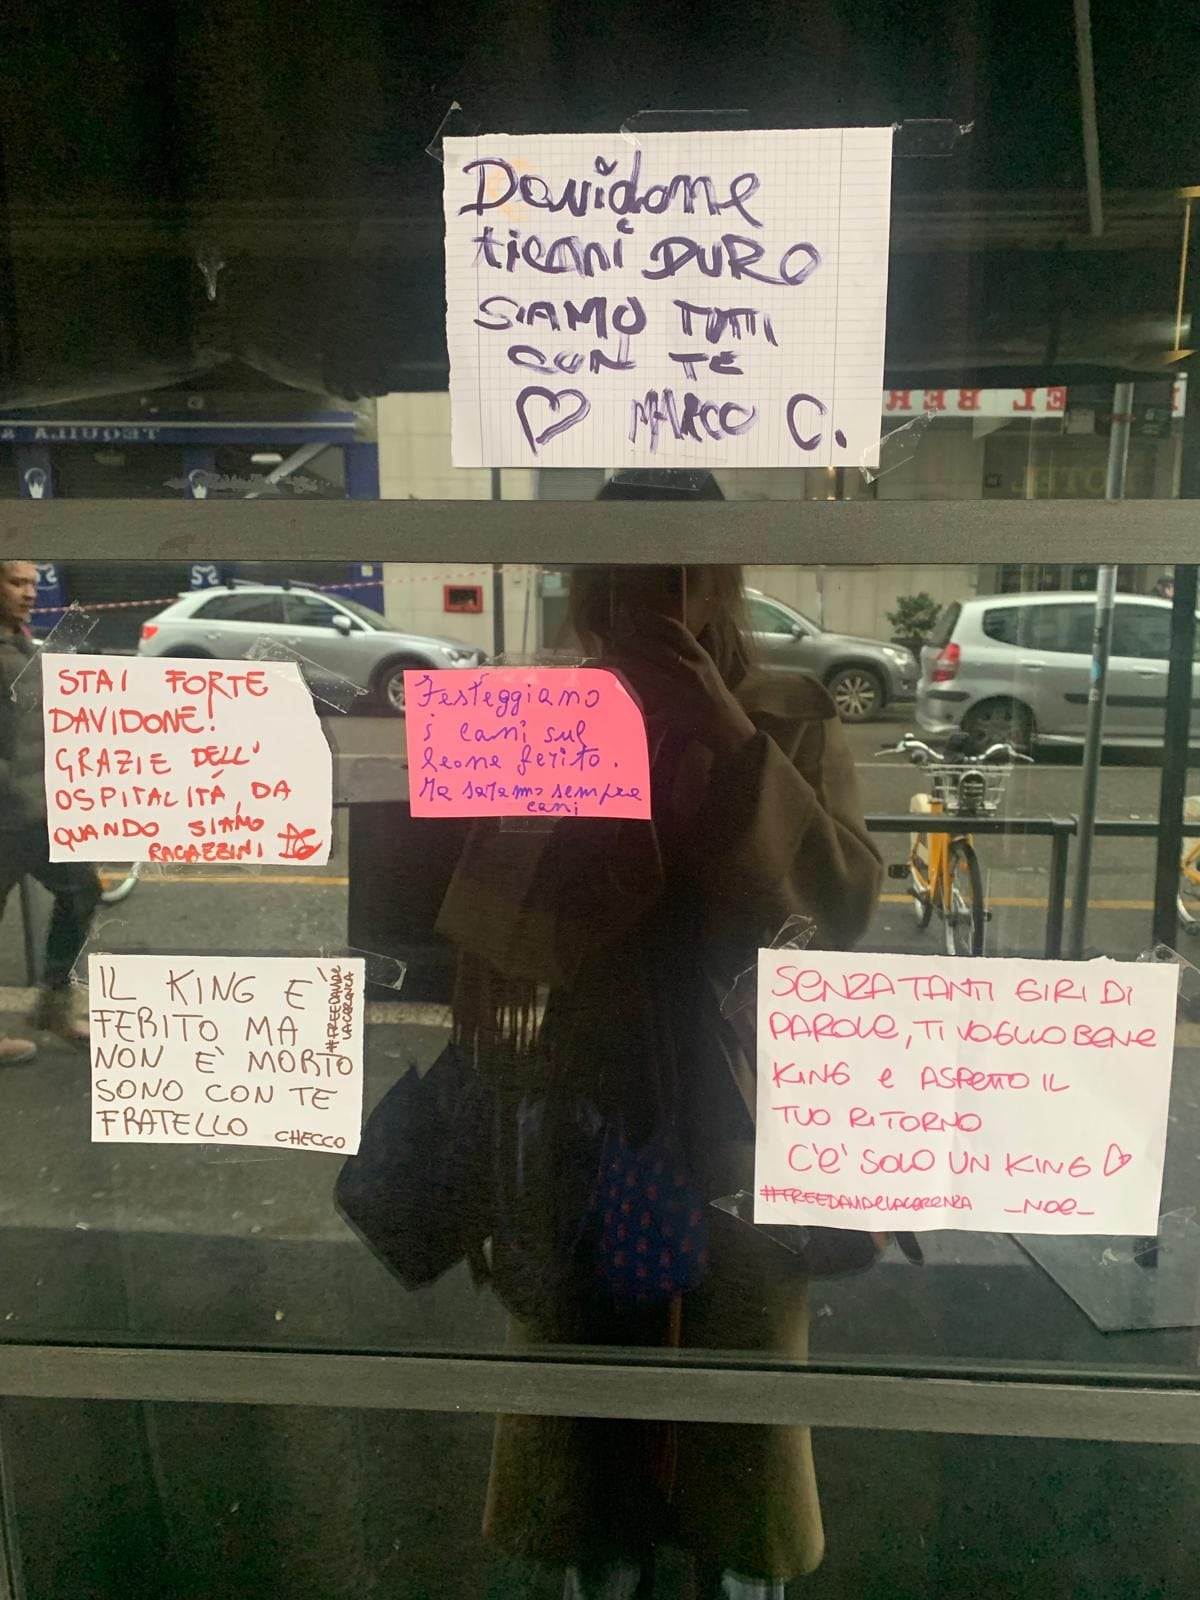 Davidone
tieni DURO
SIAMO TUTTI
CON TE
♡ MARCO C.
EL BER
STAI FORTE
DAVIDONE!
GRAZIE DELL'
OSPITALITÁ, DA
QUANDO SIAMO
RAGAZZINI
Festeggiamo
i cani sul
leone ferito.
Ma saranno sempre
cani
IL KING E'
FERITO MA
NON E' MORTO
SONO CON TE
FRATELLO CHECCO
#FREEDAVIDE
LACERENZA
SENZA TANTI GIRI DI
PAROLE, TI VOGLIO BENE
KING e ASPETTO IL
TUO RITORNO
C'E' SOLO UN KING ♡
#FREEDAVIDELACERENZA _NOE_